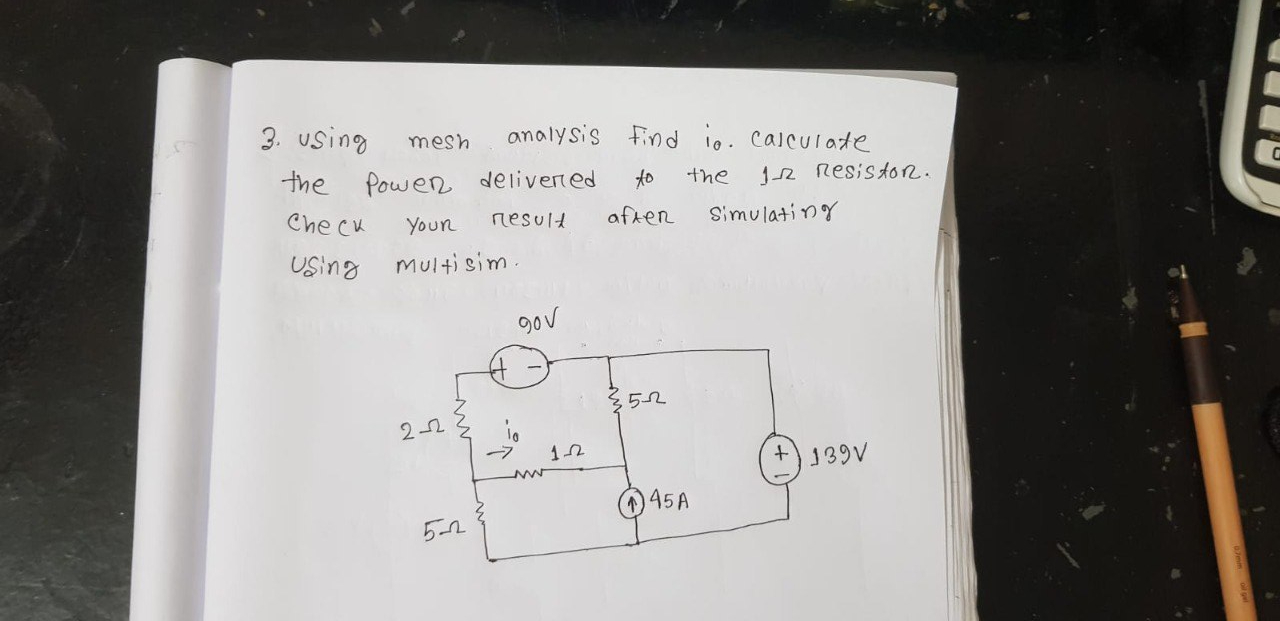 3. using mesh analysis find i₀. calculate
the power delivered to the 1Ω resistor.
Check your result after simulating
using multisim.
90V
+ -
5Ω
2Ω
i₀
1Ω
+
-
139V
45A
5Ω